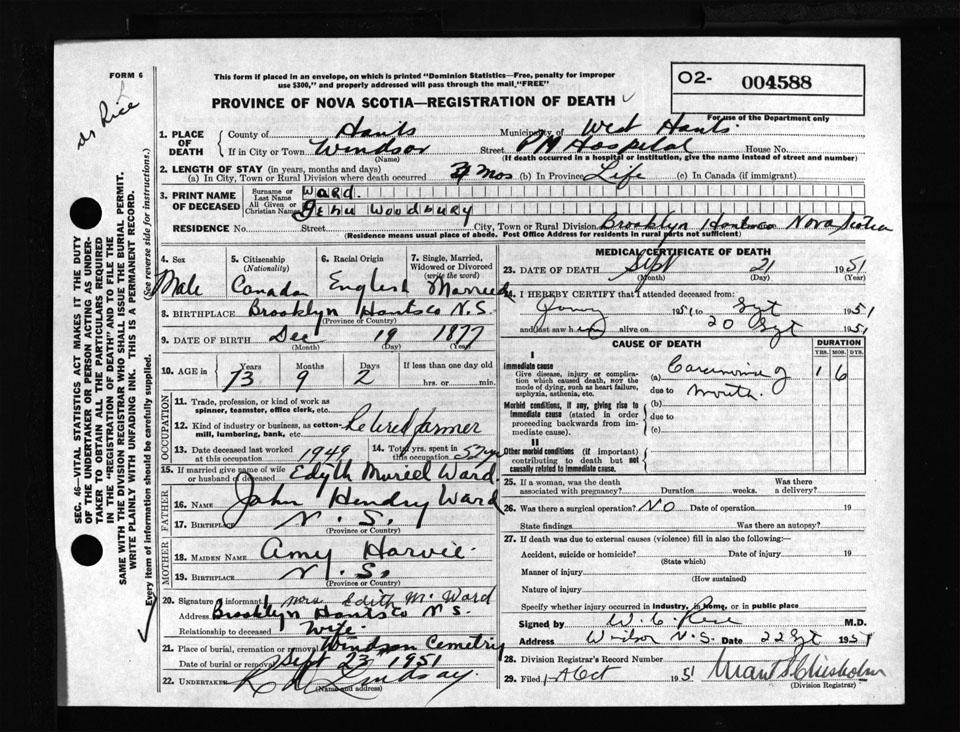 FORM 6
Dr Rice
This form if placed in an envelope, on which is printed "Dominion Statistics—Free, penalty for improper
use $300," and properly addressed will pass through the mail "FREE"
PROVINCE OF NOVA SCOTIA—REGISTRATION OF DEATH
02- 004588
For use of the Department only
1. PLACE OF DEATH { County of Hants Municipality of West Hants
If in City or Town Windsor Street PM Hospital House No.
(Name) (If death occurred in a hospital or institution, give the name instead of street and number)
2. LENGTH OF STAY (in years, months and days)
(a) In City, Town or Rural Division where death occurred Mos (b) In Province Life (c) In Canada (if immigrant)
3. PRINT NAME OF DECEASED { Surname or Last Name Ward.
All Given or Christian Names Woodbury
RESIDENCE No. Street City, Town or Rural Division Brooklyn Hants co Nova Scotia
(Residence means usual place of abode. Post Office Address for residents in rural parts not sufficient)
4. Sex Male
5. Citizenship (Nationality) Canadan
6. Racial Origin English
7. Single, Married, Widowed or Divorced (write the word) Married
8. BIRTHPLACE Brooklyn Hants co N.S.
(Province or Country)
9. DATE OF BIRTH Dec 19 1877
(Month) (Day) (Year)
10. AGE in { Years 73 Months 9 Days 2 If less than one day old
hrs. or min.
OCCUPATION
11. Trade, profession, or kind of work as
spinner, teamster, office clerk, etc.
12. Kind of industry or business, as cotton-
mill, lumbering, bank, etc. Retired farmer
13. Date deceased last worked at this occupation 1949
14. Total yrs. spent in this occupation
15. If married give name of wife
or husband of deceased Edyth Muriel Ward
FATHER
16. NAME John Hendry Ward
17. BIRTHPLACE N.S.
(Province or Country)
MOTHER
18. MAIDEN NAME Amy Harvie
19. BIRTHPLACE N.S.
(Province or Country)
20. Signature of informant Mrs Edith M. Ward
Address Brooklyn Hants Co N.S.
Relationship to deceased Wife
21. Place of burial, cremation or removal Windson Cemetry
Date of burial or removal Sept 23 1951
22. UNDERTAKER Lindsay.
(Name and address)
MEDICAL CERTIFICATE OF DEATH
23. DATE OF DEATH Sept 21 1951
(Month) (Day) (Year)
24. I HEREBY CERTIFY that I attended deceased from:
1951 to Sept 1951
and last saw him alive on 20 Sept 1951
CAUSE OF DEATH
DURATION
YRS. MOS. DYS.
1 6
I
Immediate cause
Give disease, injury or complication which caused death, NOT the mode of dying, such as heart failure, asphyxia, asthenia, etc.
(a) Carcinoma of
due to mouth.
Morbid conditions, if any, giving rise to immediate cause (stated in order proceeding backwards from immediate cause).
(b)
due to
(c)
II
Other morbid conditions (if important) contributing to death but not causally related to immediate cause.
25. If a woman, was the death associated with pregnancy? Duration weeks. Was there a delivery?
26. Was there a surgical operation? NO Date of operation 19
State findings Was there an autopsy?
27. If death was due to external causes (violence) fill in also the following:—
Accident, suicide or homicide? Date of injury 19
(State which)
Manner of injury
(How sustained)
Nature of injury
Specify whether injury occurred in industry, in home, or in public place
Signed by W. C. Rice M.D.
Address Windsor N.S. Date 22 Sept 1951
28. Division Registrar's Record Number
29. Filed Oct 1951 Chisholm
(Division Registrar)
SEC. 46—VITAL STATISTICS ACT MAKES IT THE DUTY
OF THE UNDERTAKER OR PERSON ACTING AS UNDER-
TAKER TO OBTAIN ALL THE PARTICULARS REQUIRED
IN THE "REGISTRATION OF DEATH" AND TO FILE THE
SAME WITH THE DIVISION REGISTRAR WHO SHALL ISSUE THE BURIAL PERMIT.
WRITE PLAINLY WITH UNFADING INK. THIS IS A PERMANENT RECORD.
Every item of information should be carefully supplied. (See reverse side for instructions.)